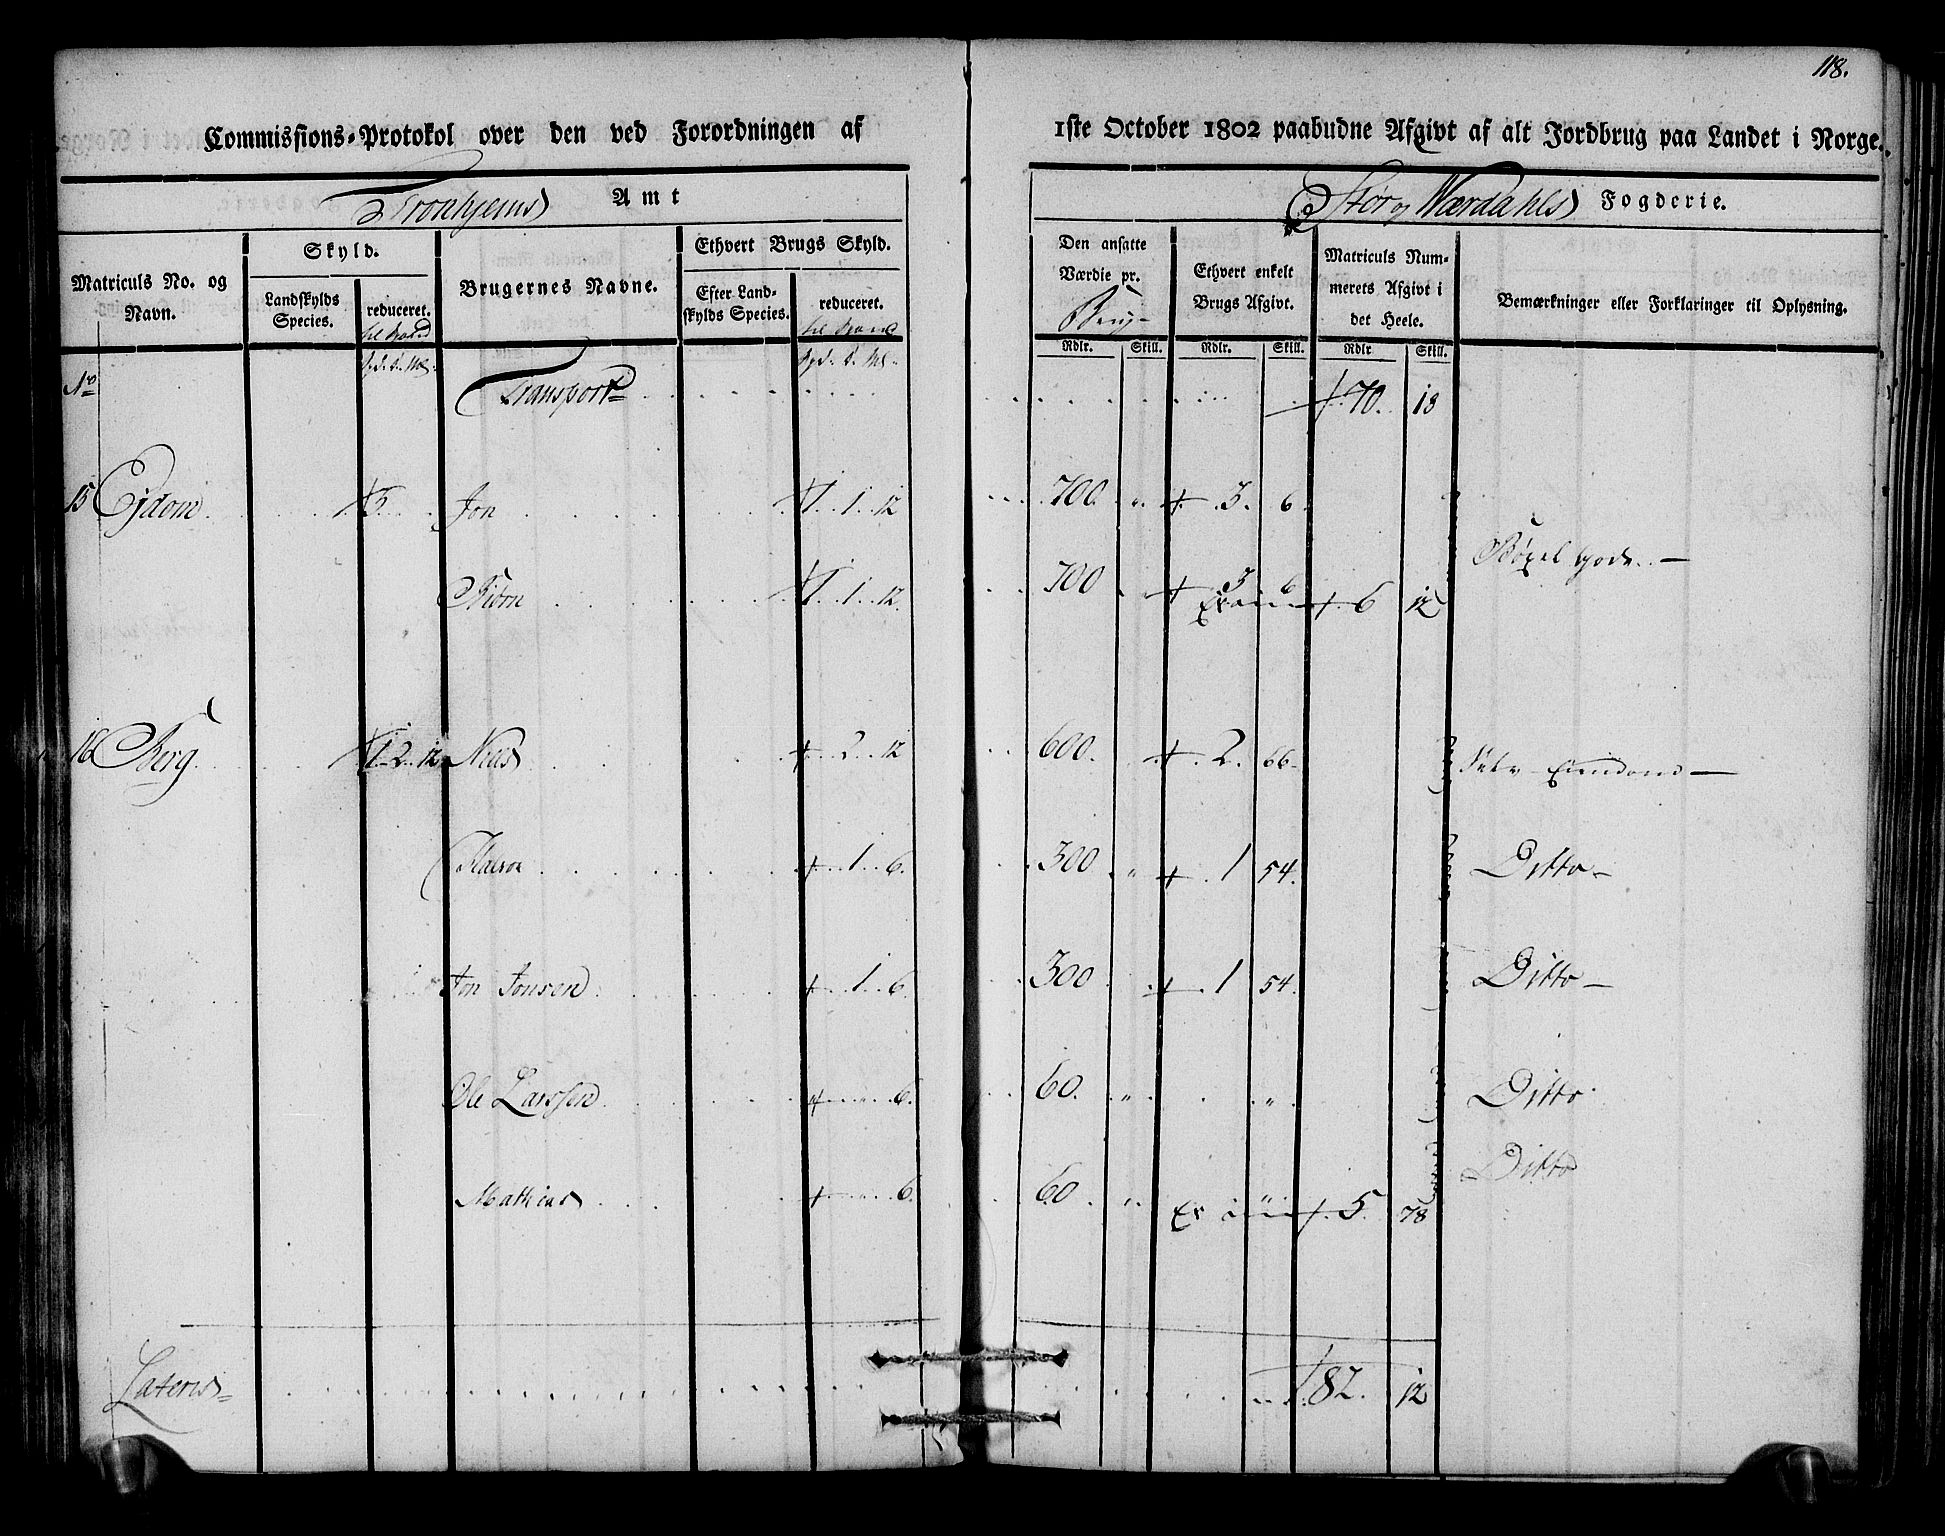 118.
Commissions-Protokol over den ved Forordningen af 1ste October 1802 paabudne Afgivt af alt Jordbrug paa Landet i Norge.
Tronhjems Amt
Stør og Wærdahls Fogderie.
Matriculs No. og Navn.
Skyld.
Landskylds Species.
reduceret.
Brugernes Navne.
Ethvert Brugs Skyld.
Efter Landskylds Species.
reduceret.
Den ansatte Værdie pr. Brug
Ethvert enkelt Brugs Afgivt.
Matriculs Nummerets Afgivt i det Heele.
Bemærkninger eller Forklaringer til Oplysning.
Rdlr. Skill. Rdlr. Skill. Rdlr Skill.
No
Transport 70. 18
15 Ejdom 3 Jon 1. 1. 12 700. " 3. 6.
Biørn 1. 1. 12. 700 3 6 6 12
Gods
16 Berg. 1. 2. 12 Niels 2. 12 600. 2. 66. Selv Eiendom
Halvor 1. 6. 300 " 1 54. Ditto
Jon Jonsen 1. 6. 300 1 54. Ditto
Ole Larssen " 6. 60. " " Ditto
Mathias 6. 60. " 5. 78 Ditto
Lateris 82. 12